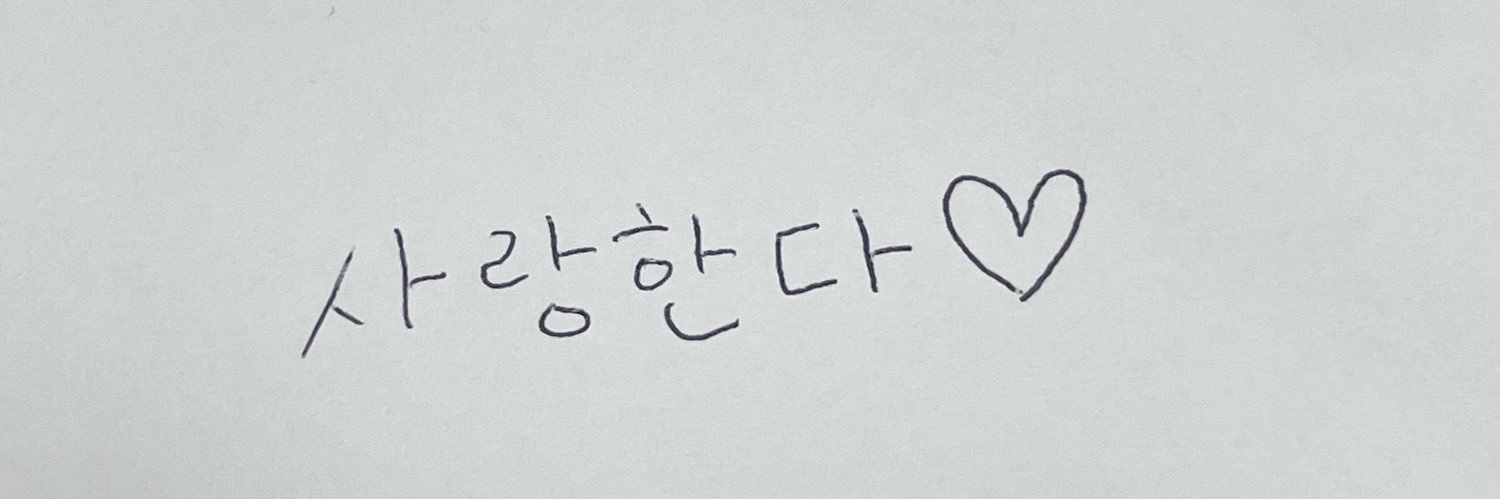 사랑한다♡